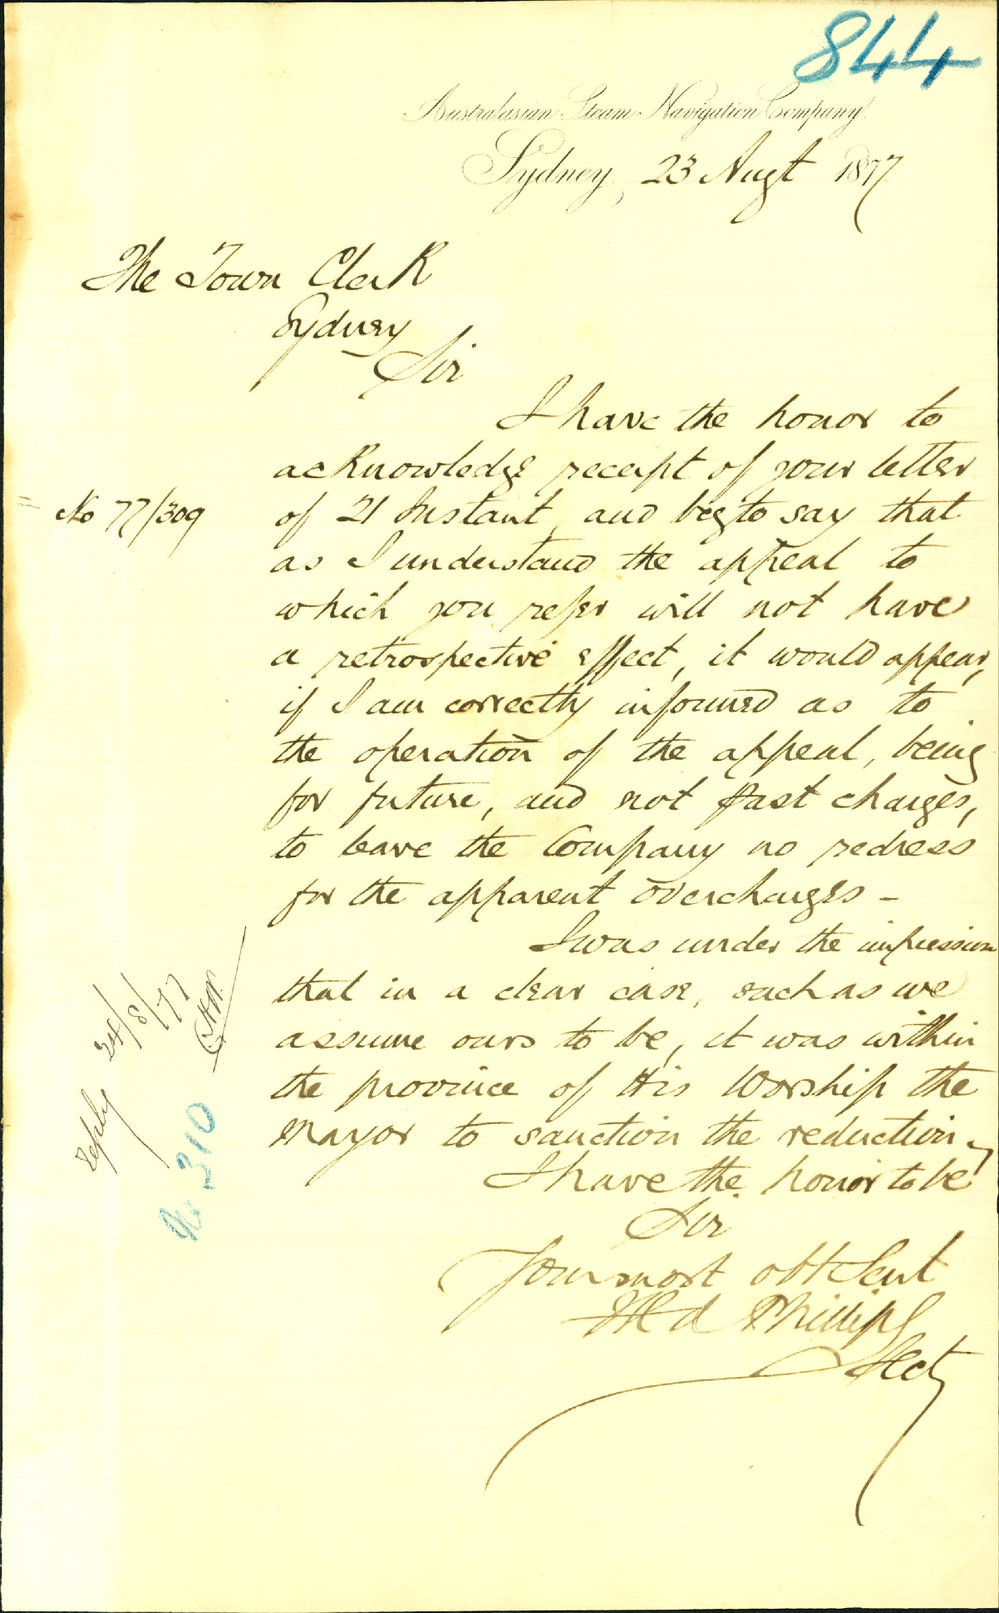 844
Australasian Steam Navigation Company
Sydney, 23 Augt 1877
The Town Clerk
Sydney
Sir
I have the honor to
acknowledge receipt of your letter
No 77/309
of 21 Instant, and beg to say that
as I understand the appeal to
which you refer will not have
a retrospective effect, it would appear,
if I am correctly informed as to
the operation of the appeal, being
for future, and not past charges,
to leave the Company no redress
for the apparent overcharges -
I was under the impression
that in a clear case, such as we
assume ours to be, it was within
the province of His Worship the
Mayor to sanction the reduction,
I have the honor to be
Sir
Your most obt Servt
Phillips
Secty
reply 24/8/77
No 310